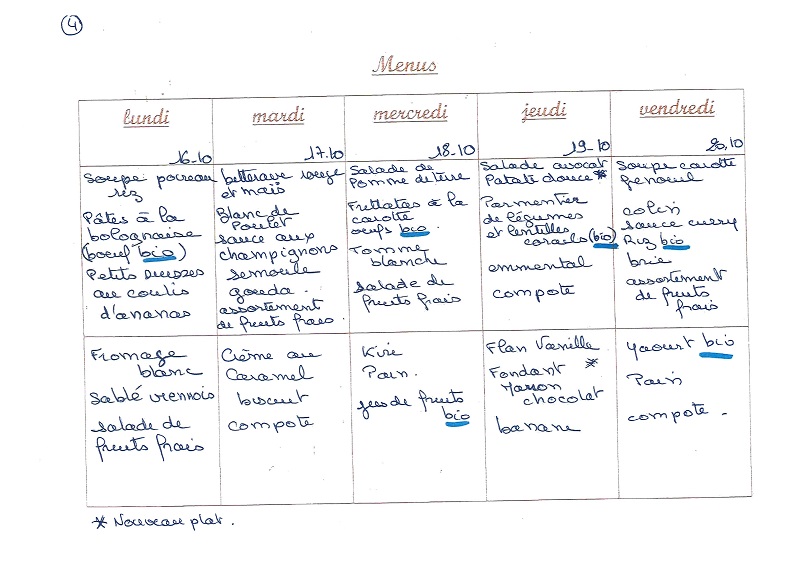 4
Menus
lundi
16-10
mardi
17.10
mercredi
18-10
jeudi
19-10
vendredi
20.10
Soupe poireau
riz
Pâtes à la
bolognaise
(boeuf bio)
Petits suisses
au coulis
d'ananas
betterave rouge
et maïs
Blanc de
Poulet
sauce aux
champignons
semoule
gouda.
assortement
de fruits frais
Salade de
Pomme de terre
Frittatas à la
carotte
oeufs bio
Tomme
blanche
salade de
fruits frais
Salade avocat
Patate douce *
Parmentier
de légumes
et lentilles
corails (bio)
emmental
compote
Soupe carotte
fenouil
colin
sauce curry
Riz bio
brie
assortement
de fruits
frais
Fromage
blanc
Sablé viennois
salade de
fruits frais
Crème au
Caramel
biscuit
compote
Kiri
Pain.
jus de fruits
bio
Flan Vanille
Fondant *
Marron
chocolat
banane
yaourt bio
Pain
compote.
* Nouveau plat.